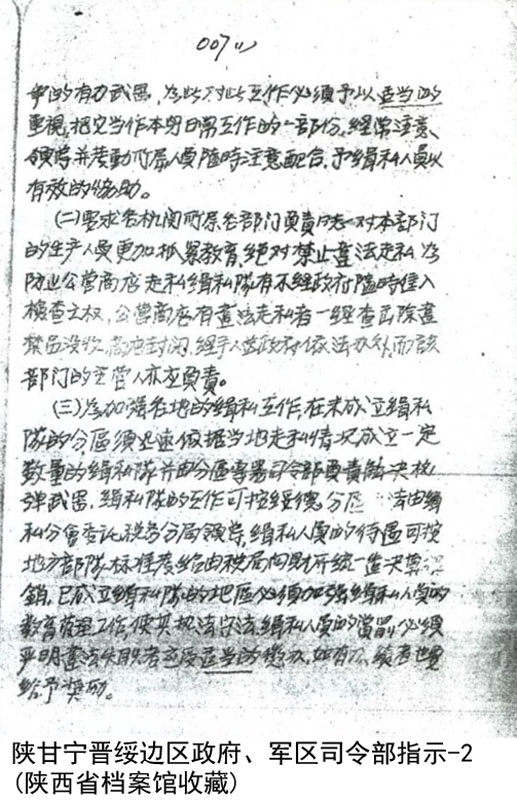 007(1)
争的有力武器,为此对此工作必须予以适当的
重视,把它当作本身日常工作的一部份,经常注意、
领导并发动所属人员随时注意配合,予缉私人员以
有效的协助。
(二)要求各机关所属各部门负责同志对本部门
的生产人员更加抓紧教育,绝对禁止违法走私,为
防止公营商店走私缉私队有不经政府随时进入
检查之权,公营商店有违法走私者一经查出除违
禁品没收,商店封闭,经手人送政府依法办外,而该
部门的主管人亦应负责。
(三)为加强各地的缉私工作,在未成立缉私
队的分区须迅速依据当地走私情况成立一定
数量的缉私队并由分区专署司令部负责解决枪
弹武器,缉私队的工作可按绥德分区 法由缉
私分会委托税务分局领导,缉私人员的待遇可按
地方部队标准发给由税局向财厅统一造决算
销,已成立缉私队的地区必须加强缉私人员的
教育管理工作,使其执法守法,缉私人员的赏罚必须
严明,违法失职者应受适当的惩办,如有
给予奖励。
陕甘宁晋绥边区政府、军区司令部指示-2
(陕西省档案馆收藏)